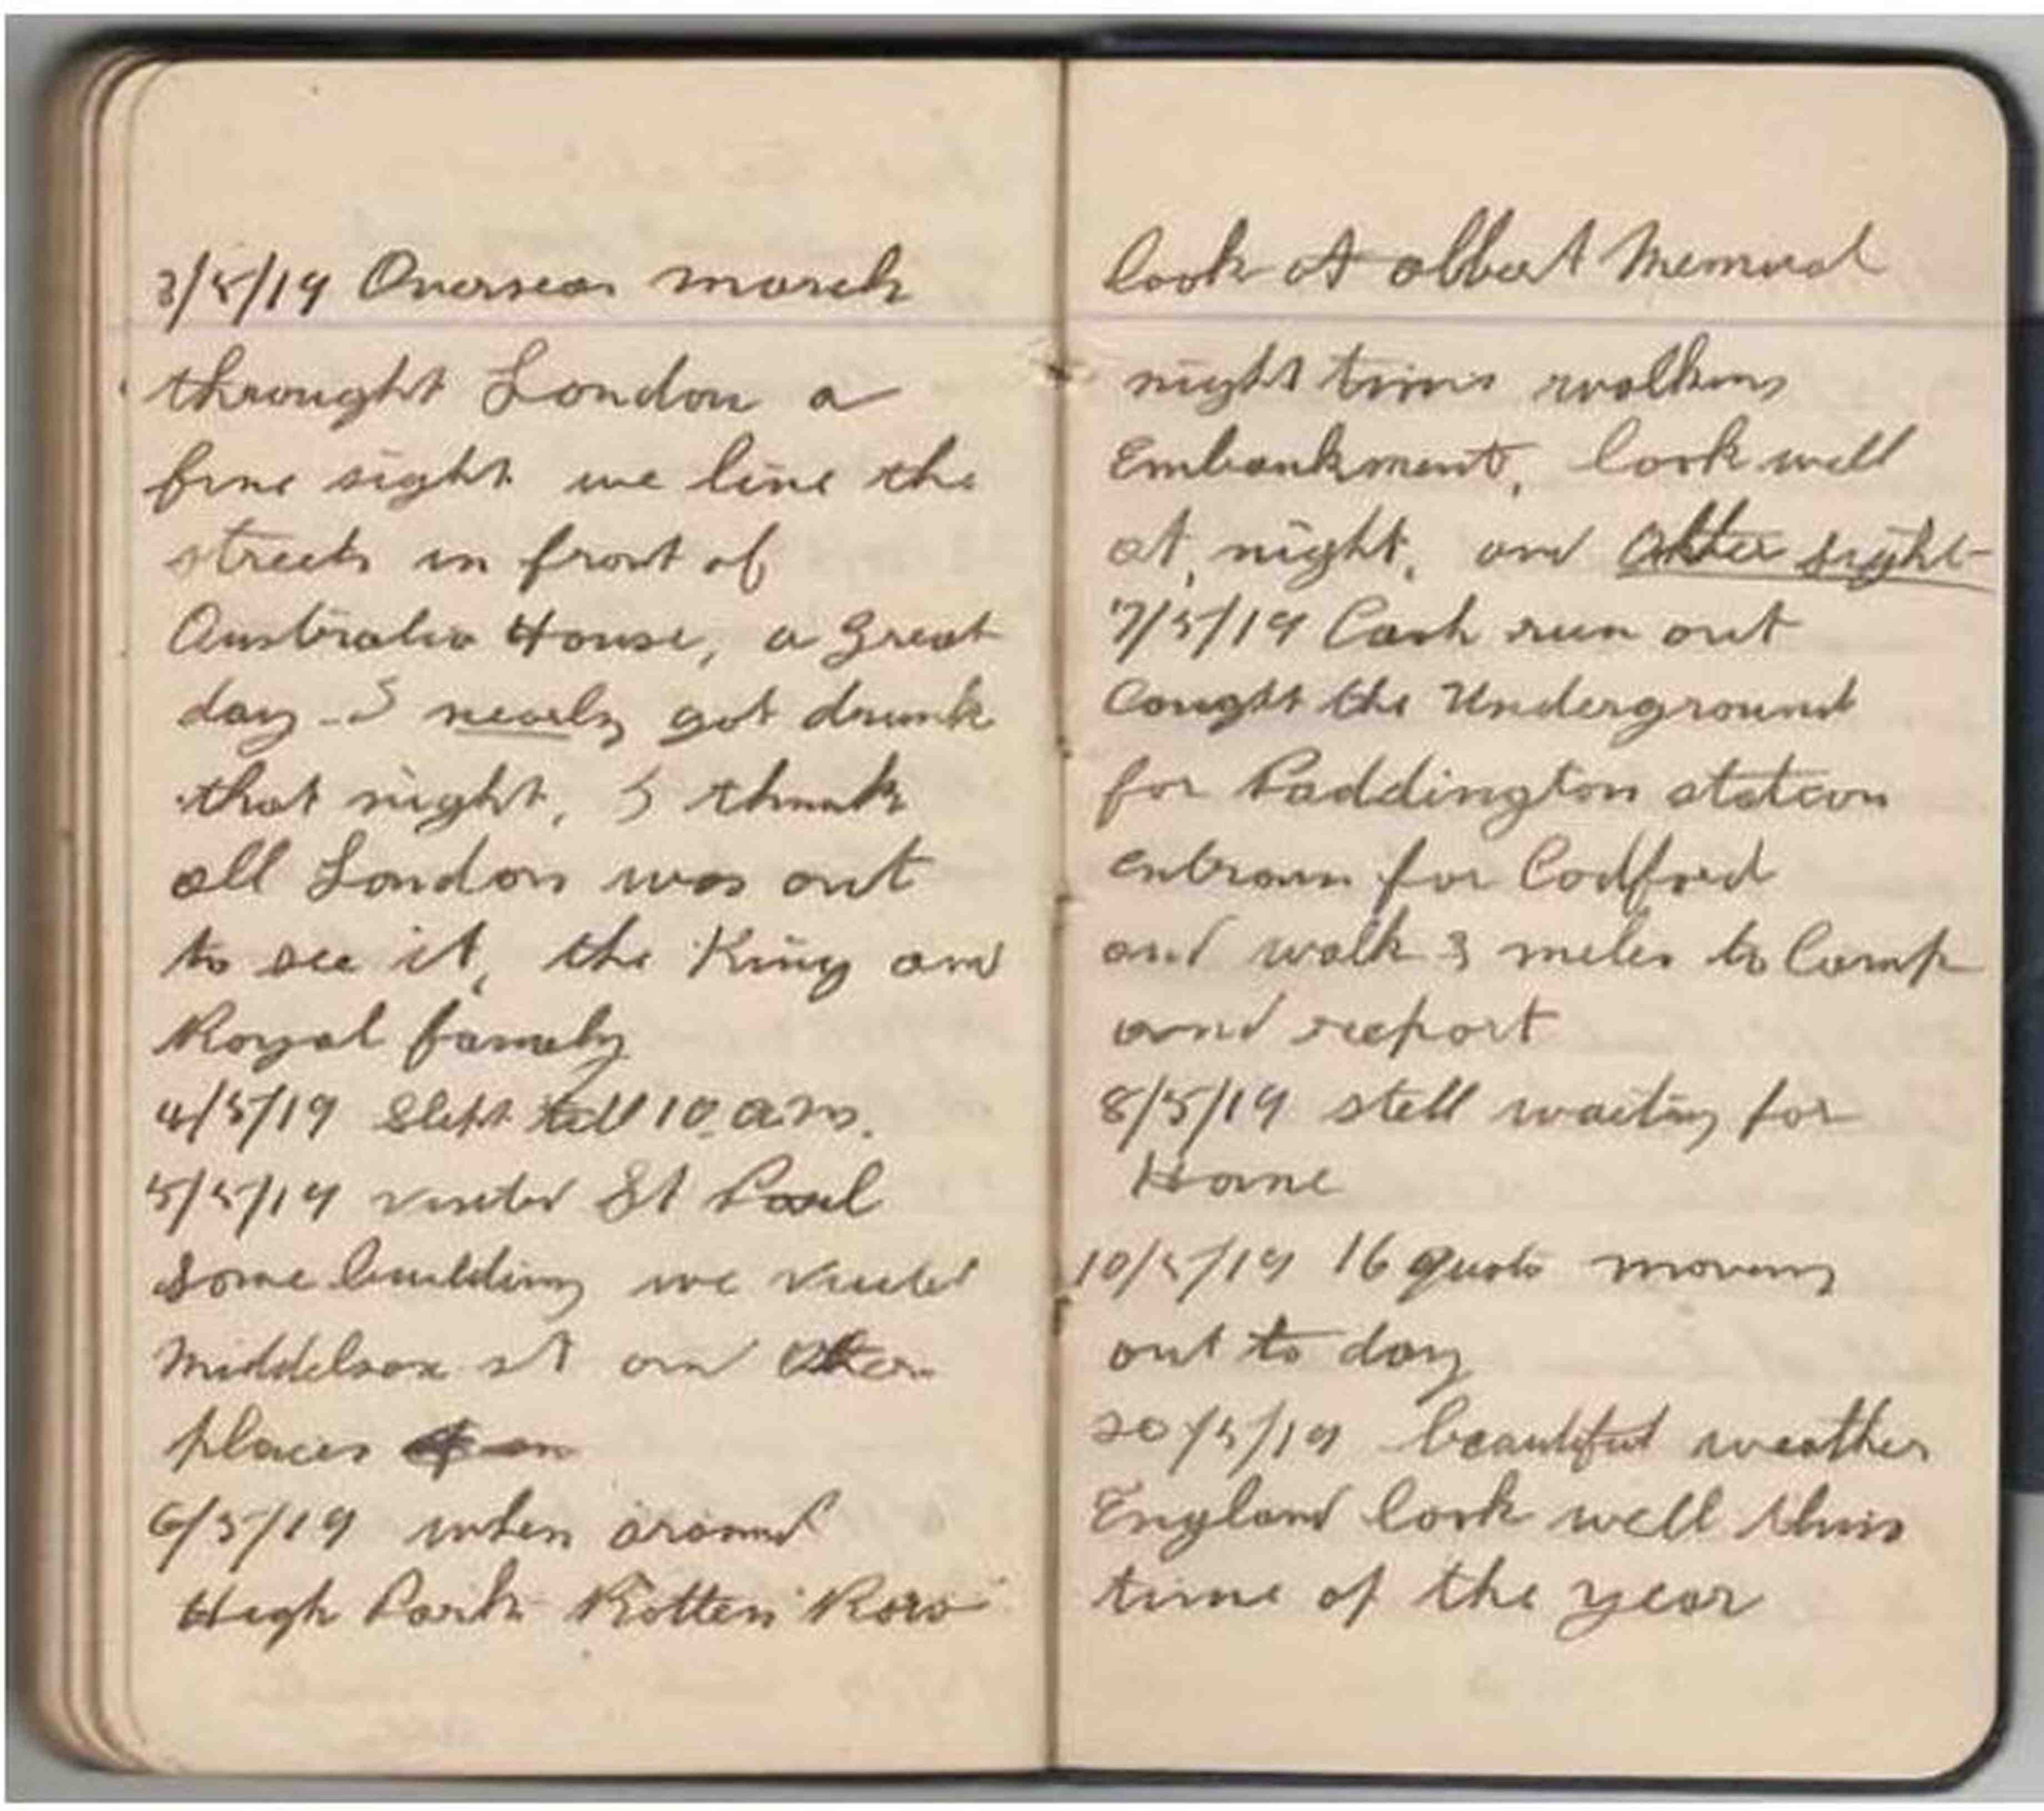 3/5/19 Overseas march
throught London a
fine sight we line the
streets in front of
Australia House, a Great
day - I nearly got drunk
that night, I think
all London was out
to see it, the King and
Royal family
4/5/19 Slept till 10 a.m.
5/5/19 visited St Paul
some building we visited
Middelsex st and other
places
6/5/19 when around
High Park Rotten Row
look at albert Memorial
night time walking
Embankment, look well
at night, and other sight
7/5/19 Cash run out
Cought the Underground
for Paddington station
entrain for Codford
and walk 3 miles to Camp
and report
8/5/19 still waiting for
Home
10/5/19 16 quota moving
out to day
20/5/19 beautiful weather
England look well this
time of the year